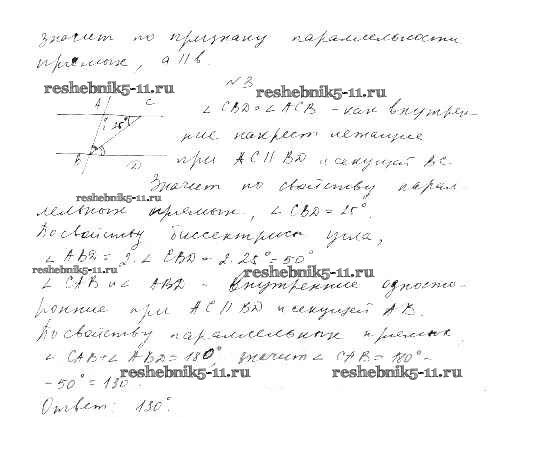 значит по признаку параллельности
прямых, a||b.
reshebnik5-11.ru
reshebnik5-11.ru
№3
A C
25°
B D
∠CBD и ∠ACB - как внутрен-
ние накрест лежащие
при AC||BD и секущей BC.
Значит по свойству парал-
reshebnik5-11.ru
лельных прямых, ∠CBD = 25°.
По свойству биссектрисы угла,
∠ABD = 2·∠CBD = 2·25° = 50°
reshebnik5-11.ru
reshebnik5-11.ru
∠CAB и ∠ABD - внутренние односто-
ронние при AC||BD и секущей AB.
По свойству параллельных прямых
∠CAB+∠ABD=180°, значит ∠CAB = 180°-
reshebnik5-11.ru
reshebnik5-11.ru
-50° = 130°
Ответ: 130°.